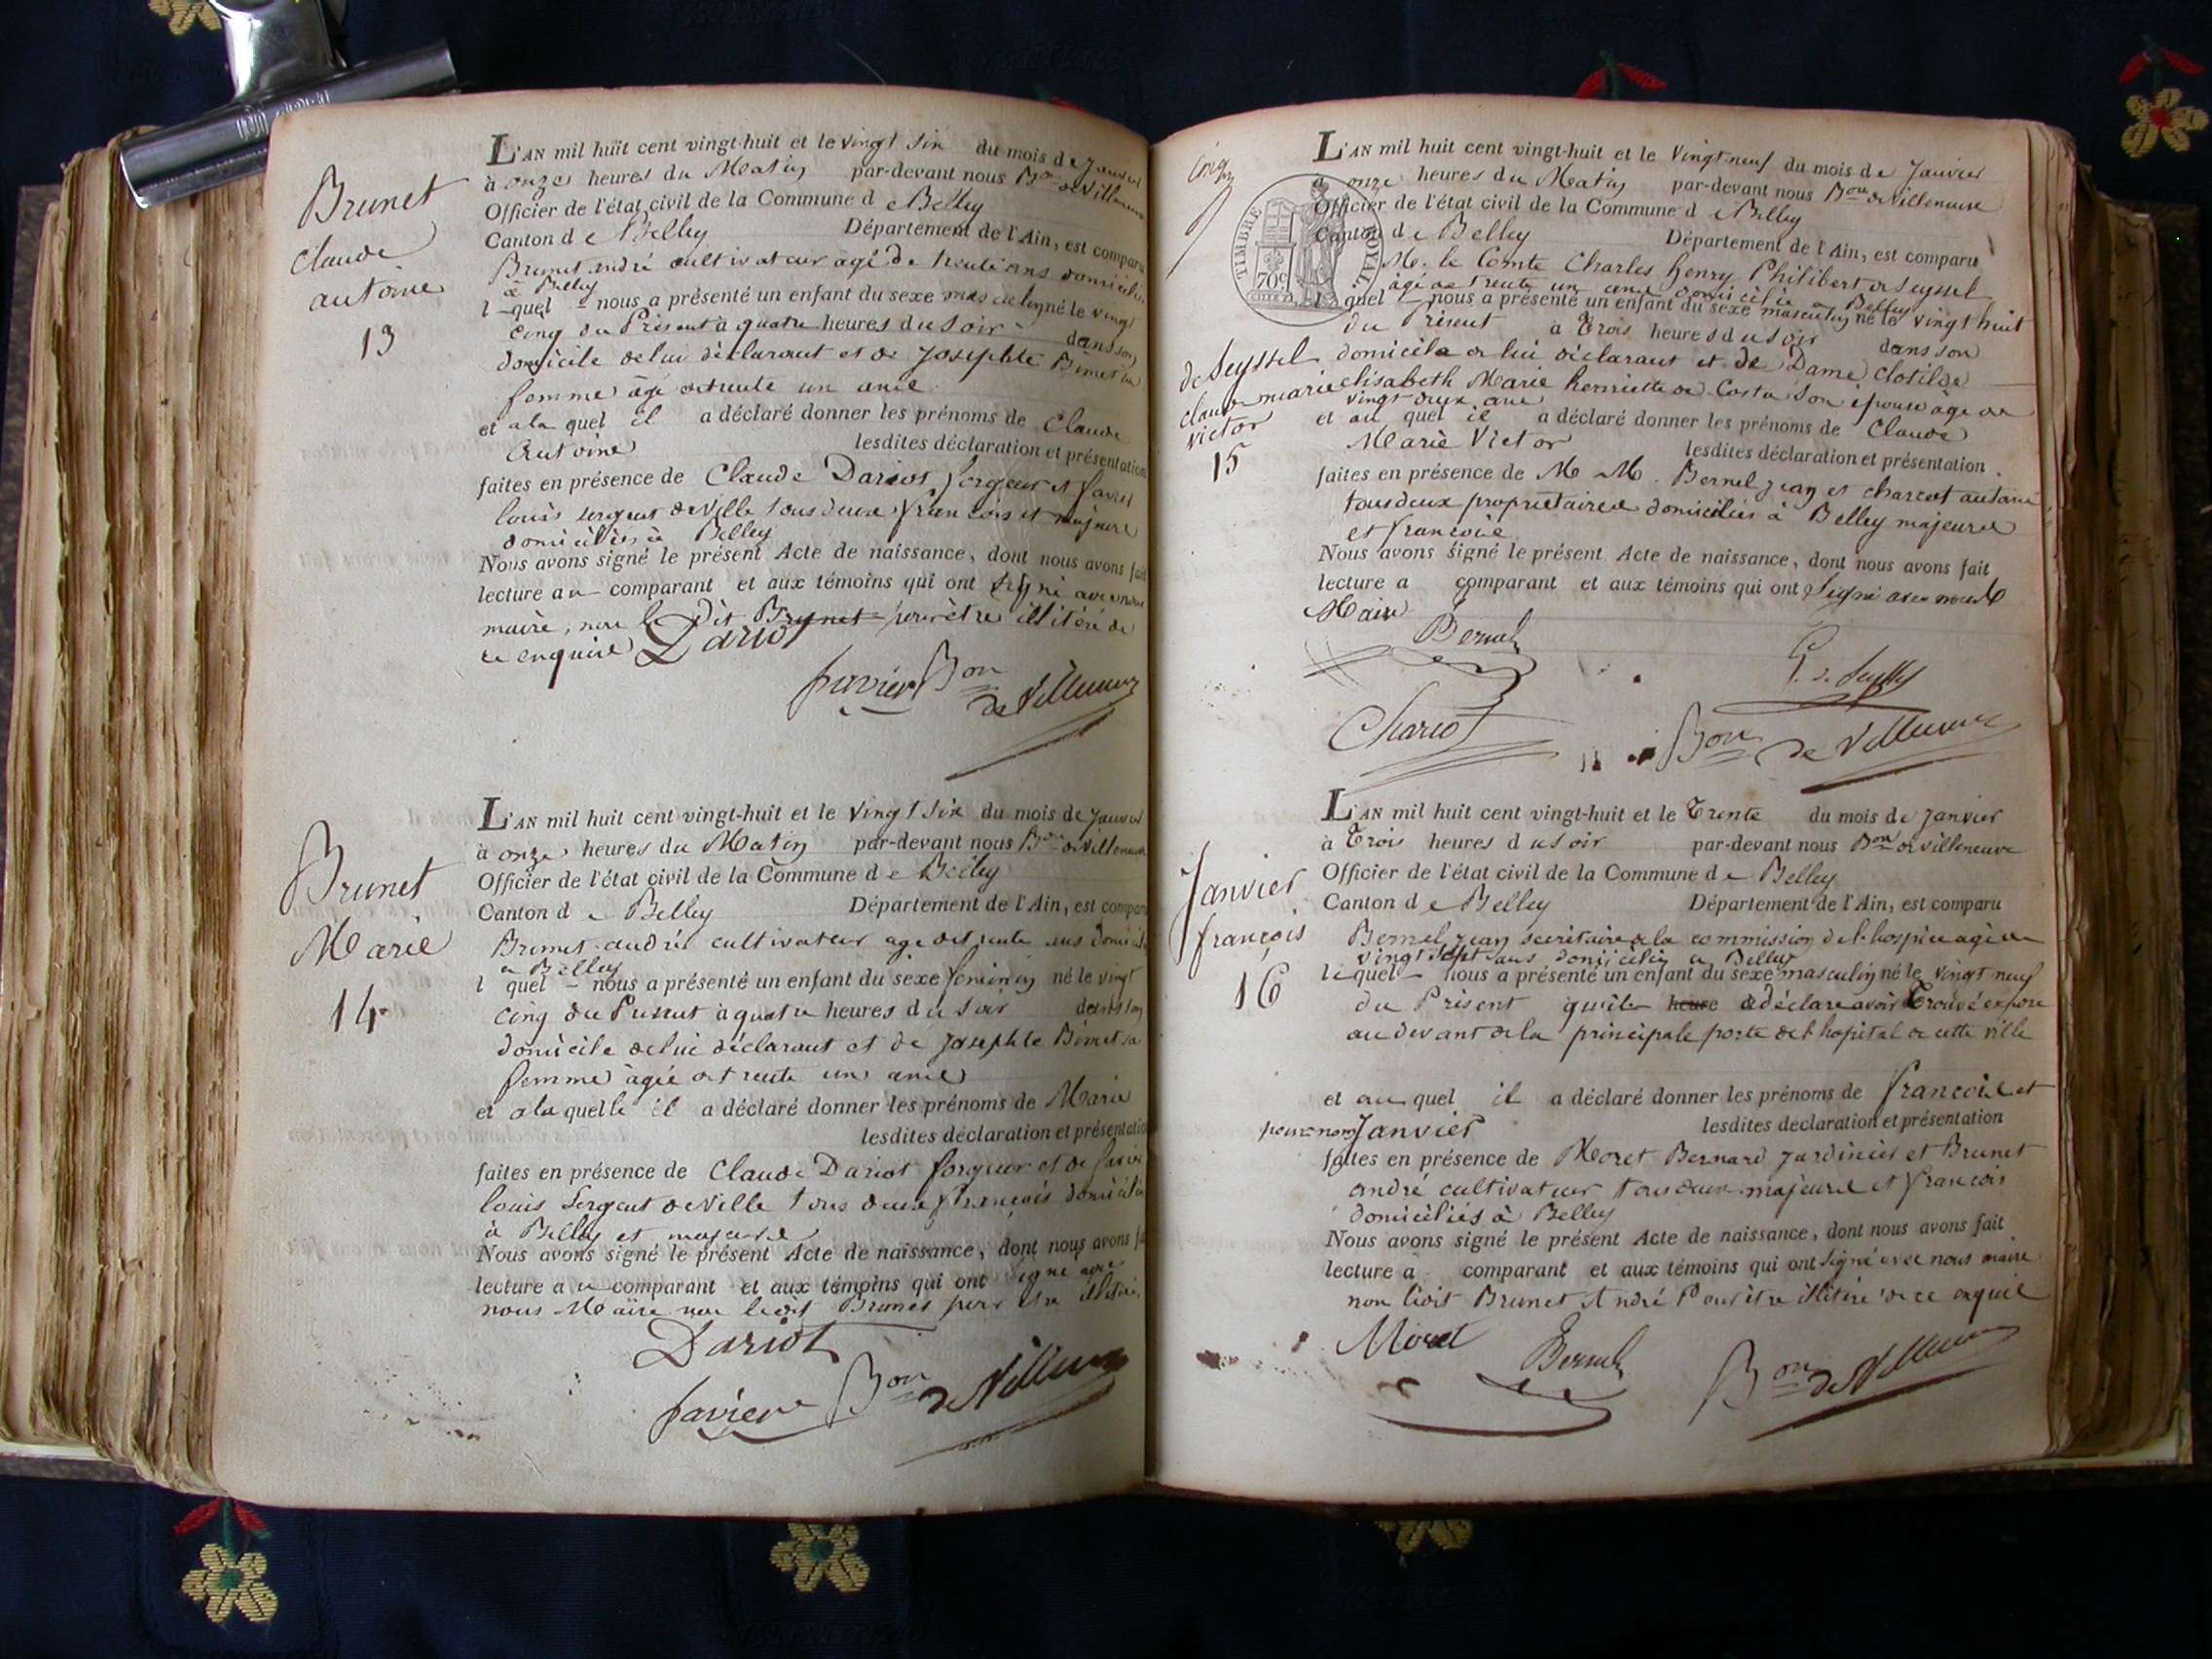 Brunet
Claude
antoine
13
L'AN mil huit cent vingt-huit et le vingt six du mois de Janvier
à onze heures du Matin par-devant nous Bon de Villeneuve
Officier de l'état civil de la Commune d e Belley
Canton d e Belley Département de l'Ain, est comparu
Brunet andré cultivateur agé de trente ans domicilié
à Belley
l quel nous a présenté un enfant du sexe masculin né le vingt
cinq du Présent à quatre heures du Soir dans son
domicile de lui déclarant et de Josephte Binet sa
femme agé de trente un ans
et a la quel il a déclaré donner les prénoms de Claude
Antoine lesdites déclaration et présentation
faites en présence de Claude Dariot forgeur et favier
louis sergent de Ville tous deux francois et majeure
domiciliés à Belley
Nous avons signé le présent Acte de naissance, dont nous avons fait
lecture au comparant et aux témoins qui ont signé avec nous
maire, non le Dit Brunet pour être illitéré de
ce enquis Dariot
favier Bon
de Villeneuve
Brunet
Marie
14
L'AN mil huit cent vingt-huit et le vingt six du mois de Janvier
à onze heures du Matin par-devant nous Bon de Villeneuve
Officier de l'état civil de la Commune d e Belley
Canton d e Belley Département de l'Ain, est comparu
Brunet andré cultivateur agé de trente ans domicilié
a Belley
l quel nous a présenté un enfant du sexe feminin né le vingt
cinq du Present à quatre heures du Soir dans son
domicile de lui déclarant et de Josephte Binet sa
femme agée de trente un ans
et a la quelle il a déclaré donner les prénoms de Marie
lesdites déclaration et présentation
faites en présence de Claude Dariot forgeur et de favier
louis Sergent de Ville tous deux françois domiciliés
à Belley et majeure
Nous avons signé le présent Acte de naissance, dont nous avons fait
lecture au comparant et aux témoins qui ont signé avec
nous Maire non le dit Brunet pour être illitéré
Dariot
favier Bon de Villeneuve
cinq
TIMBRE ROYAL
70c
de Seyssel
claude marie
victor
15
L'AN mil huit cent vingt-huit et le Vingt neuf du mois de Janvier
à onze heures du Matin par-devant nous Bon de Villeneuve
Officier de l'état civil de la Commune d e Belley
Canton d e Belley Département de l'Ain, est comparu
M. le Comte Charles henry Philibert de Seyssel
agé de trente un ans domicilié a Belley
l quel nous a présenté un enfant du sexe masculin né le vingt huit
du Présent à Trois heures du soir dans son
domicile de lui déclarant et de Dame Clotilde
elisabeth Marie henriette de Costa Son épouse âgée de
vingt deux ans
et au quel il a déclaré donner les prénoms de Claude
Marie Victor lesdites déclaration et présentation
faites en présence de M M. Bernel jean et charcot antoine
tous deux propriétaires domiciliés à Belley majeure
et francois
Nous avons signé le présent Acte de naissance, dont nous avons fait
lecture a comparant et aux témoins qui ont Signé avec nous
Maire
Bernel
Charcot
Bon de Villeneuve
Janvier
françois
16
L'AN mil huit cent vingt-huit et le Trente du mois de Janvier
à Trois heures du soir par-devant nous Bon de Villeneuve
Officier de l'état civil de la Commune d e Belley
Canton d e Belley Département de l'Ain, est comparu
Bernel jean secrétaire de la commission de l'hospice agé de
vingt sept ans domicilié a Belley
le quel nous a présenté un enfant du sexe masculin né le vingt neuf
du Présent qu'il heure a déclaré avoir Trouvé exposé
au devant de la principale porte de l'hopital de cette ville
et au quel il a déclaré donner les prénoms de francois et
pour nom Janvier lesdites déclaration et présentation
faites en présence de Moret Bernard Jardinier et Brunet
andré cultivateur tous deux majeure et francois
domiciliés à Belley
Nous avons signé le présent Acte de naissance, dont nous avons fait
lecture a comparant et aux témoins qui ont signé avec nous maire
non ledit Brunet André Pour être illitéré de ce enquis
Moret Bernel Bon de Villeneuve